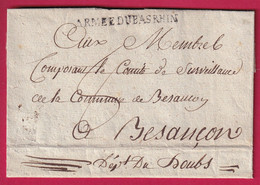 ARMÉE DU BAS RHIN
Aux Membres
Composant le Comité de Surveillance
de la Commune de Besançon
à Besançon
Dépt. Du Doubs